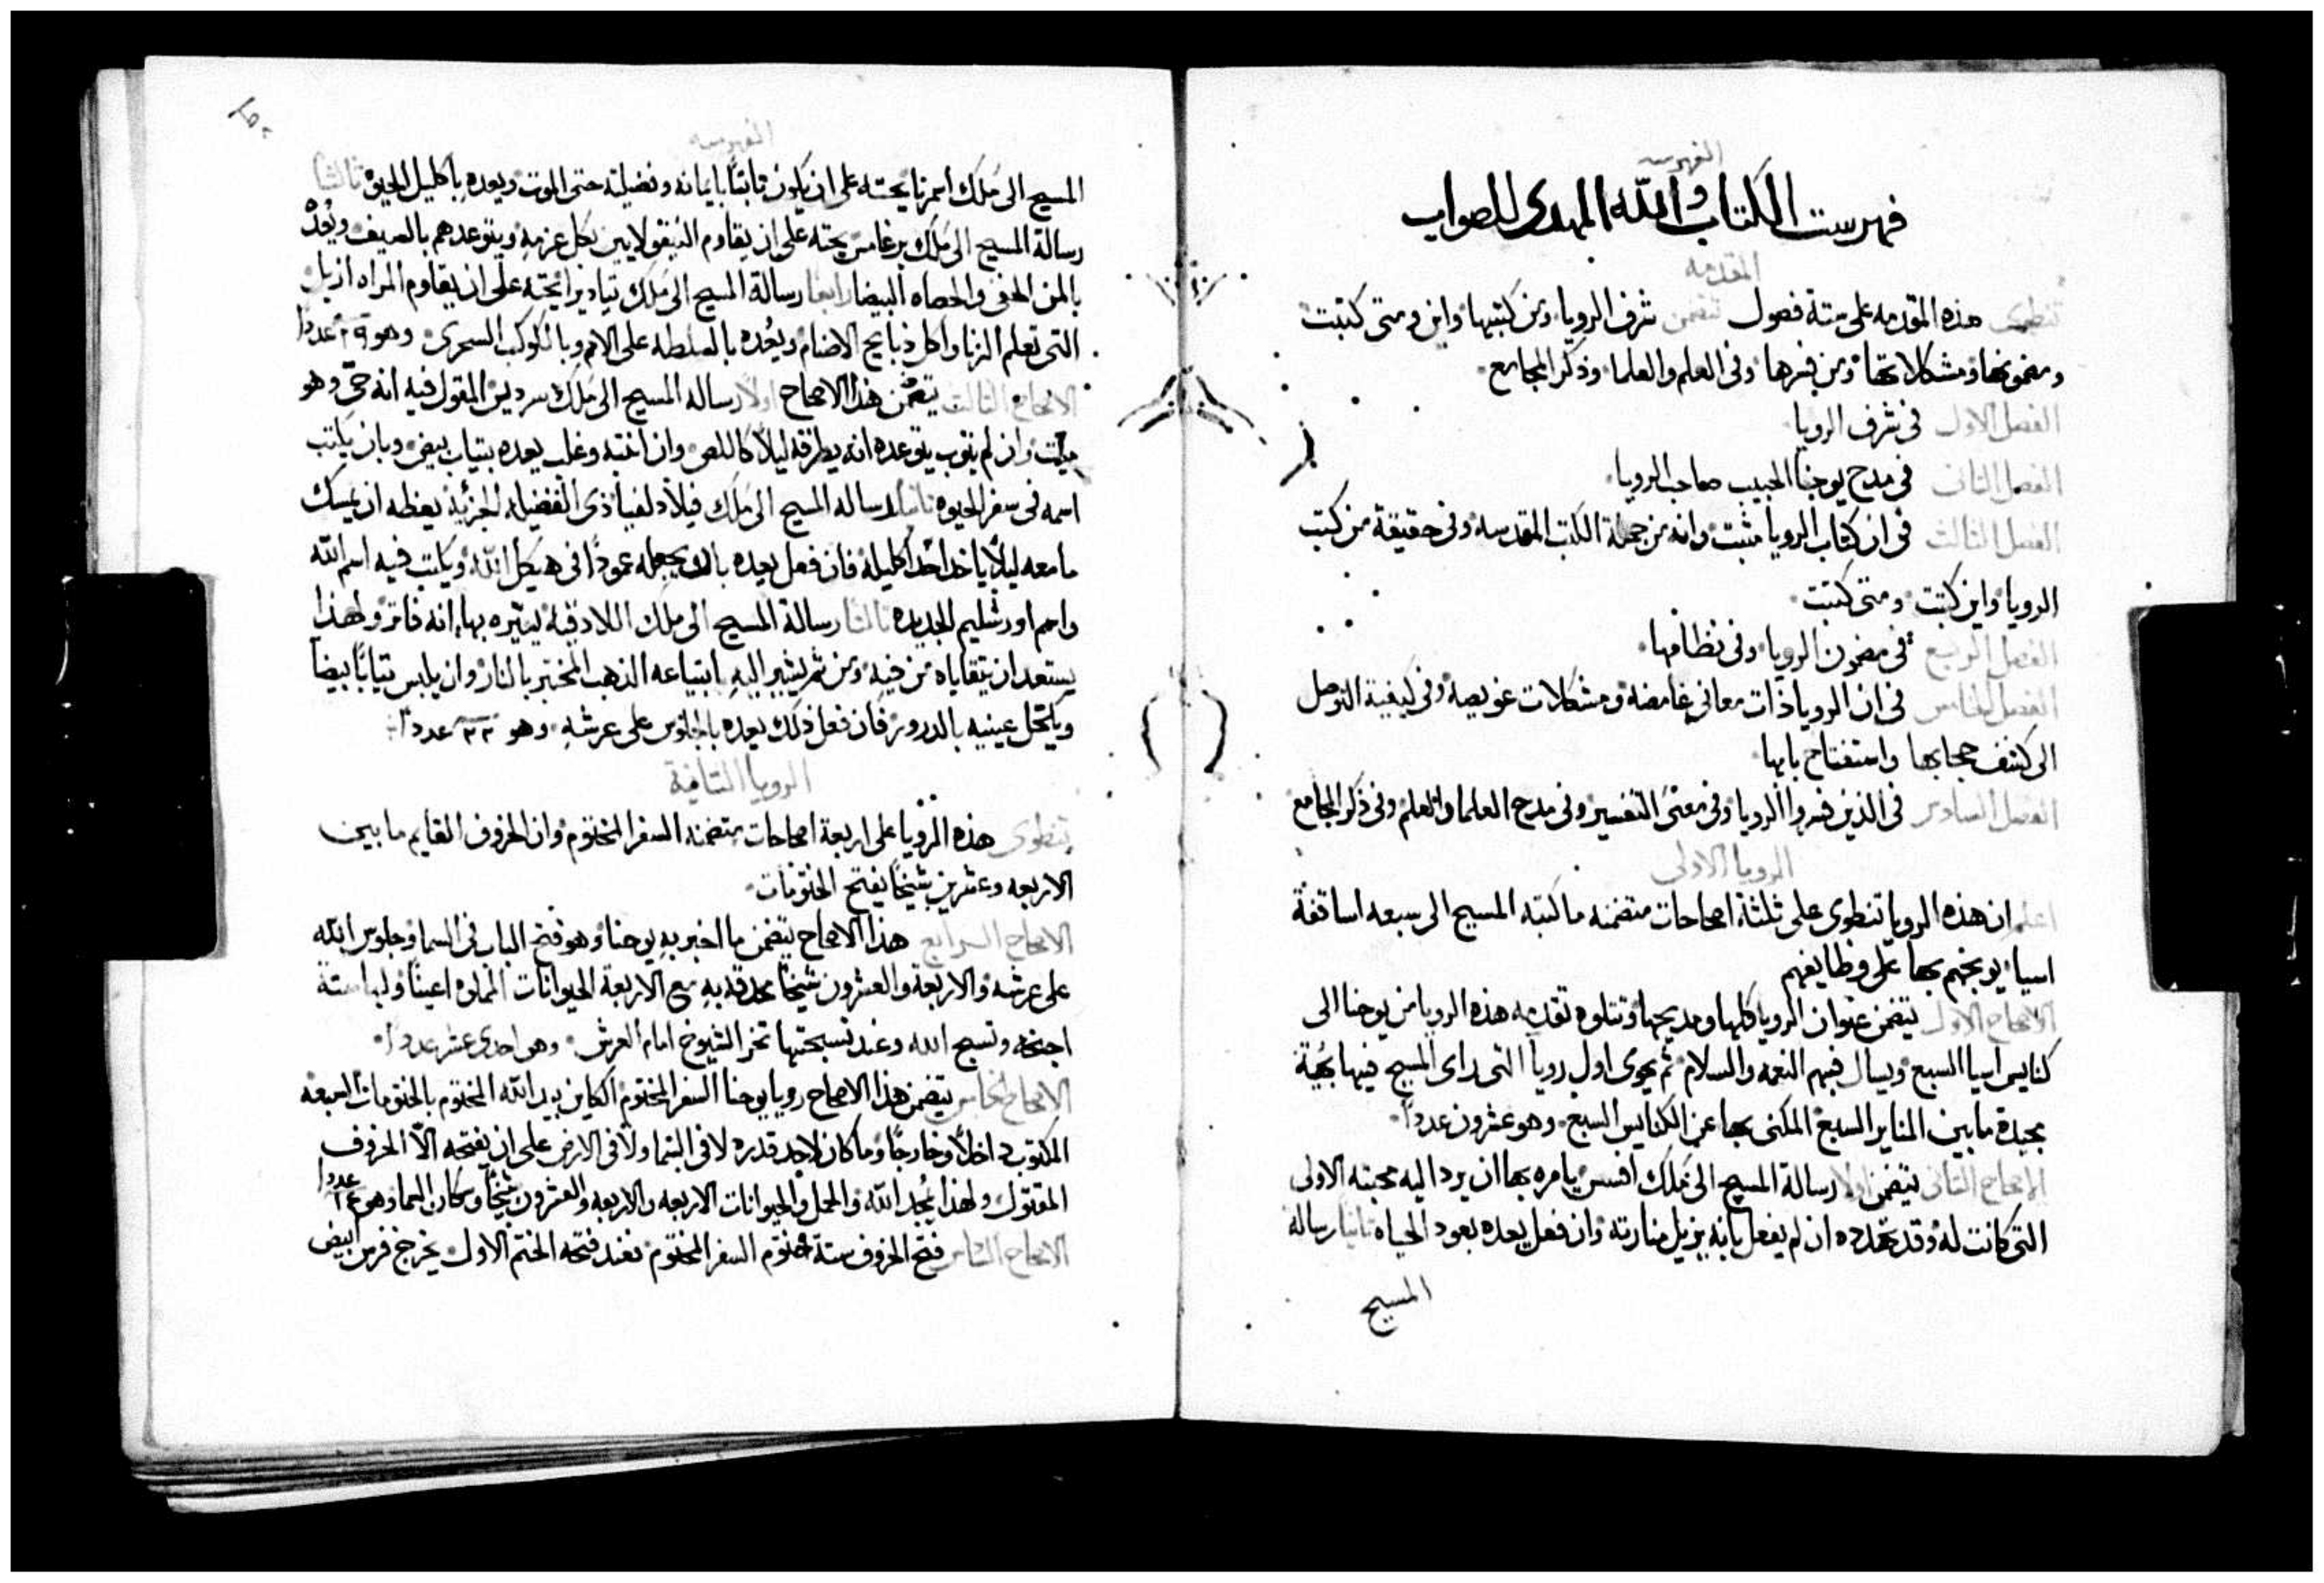 الفهرسه
فهرست الكتاب والله المهدى للصواب
المقدمه
تنطوى هذه المقدمه على ستة فصول تتضمن شرف الرويا ومن كتبها واين ومتى كتبت
ومضمونها ومشكلاتها ومن فسرها وفى العلم والعلما وذكر المجامع
الفصل الاول فى شرف الرويا
الفصل الثانى فى مدح يوحنا الحبيب صاحب الرويا
الفصل الثالث فى ان كتاب الرويا مثبت وانه من جملة الكتب المقدسه وفى حقيقة من كتب
الرويا واين كتبت ومتى كتبت
الفصل الرابع فى مضمون الرويا وفى نظامها
الفصل الخامس فى ان الرويا ذات معانى غامضه ومشكلات عويصه وفى كيفية التوصل
الى كشف حجابها واستفتاح بابها
الفصل السادس فى الذين فسروا الرويا وفى معنى التفسير وفى مدح العلما والعلم وفى ذكر المجامع
الرويا الاولى
اعلم ان هذه الرويا تنطوى على ثلثة اصحاحات متضمنه ما كتبه المسيح الى سبعه اساقفة
اسيا يوبخهم بها على وظايفهم
الاصحاح الاول يتضمن عنوان الرويا كلها ومديحها وتتلوه تقدمه هذه الرويا من يوحنا الى
كنايس اسيا السبع ويسال فيهم النعمه والسلام ثم يحوى اول رويا التى راى المسيح فيها بجبة
مجيدة ما بين المناير السبع المكنى بها عن الكنايس السبع وهو عشرون عددا
الاصحاح الثانى يتضمن اولا رسالة المسيح الى ملك افسس يامره بها ان يرد اليه محبته الاولى
التى كانت له وقد تهدده ان لم يفعل بانه يزيل منارته وان فعل يعده بعود الحياه ثانيا رسالة
المسيح
الفهرسه
المسيح الى ملك اسمرنا يحثه على ان يكون ثابتا بايمانه وفضيلته حتى الموت ويعده باكليل الحيوة ثالثا
رسالة المسيح الى ملك برغامس يحثه على ان يقاوم النيقولايين بكل عزمه ويتوعدهم بالسيف ويعد
بالمن الخفى والحصاه البيضا رابعا رسالة المسيح الى ملك تياديرا يحثه على ان يقاوم المراه ازبل
التى تعلم الزنا واكل ذبايح الاصنام ويعده بالسلطه على الامم وبالكوكب السحرى وهو ٢٩ عددا
الاصحاح الثالث يتضمن هذا الاصحاح اولا رساله المسيح الى ملك سرديس المقول فيه انه حى وهو
ميت وان لم يتوب يتوعده انه يطرقه ليلا كاللص وان انتبه وغلب يعده بثياب بيض وبان يكتب
اسمه فى سفر الحيوه ثانيا رساله المسيح الى ملك فيلادلفيا ذى الفضيله الجزئية يعظه ان يمسك
ما معه ليلا ياخذ احد اكليله فان فعل يعده بانه يجعله عمودا فى هيكل الله ويكتب فيه اسم الله
واسم اورشليم الجديده ثالثا رسالة المسيح الى ملك اللادقية يبشره بها انه فاتر ولهذا
يستعد ان يتقاياه من فيه ومن ثم يشير اليه ابتياعه الذهب المختبر بالنار وان يلبس ثيابا بيضا
ويكحل عينيه بالدرور فان فعل ذلك يعده بالجلوس على عرشه وهو ٢٢ عددا
الرويا الثانية
تنطوى هذه الرويا على اربعة اصحاحات متضمنه السفر المختوم وان الخروف القايم ما بين
الاربعه وعشرين شيخا يفتح الختومات
الاصحاح الرابع هذا الاصحاح يتضمن ما اخبر به يوحنا وهو فتح الباب فى السما وجلوس الله
على عرشه والاربعة والعشرون شيخا محدقه به مع الاربعة الحيوانات المملوه اعينا ولها ستة
اجنحه وتسبح الله وعند تسبحتها تخر الشيوخ امام العرش وهو احدى عشر عددا
الاصحاح الخامس يتضمن هذا الاصحاح رويا يوحنا السفر المختوم الكاين بيد الله المختوم بالختومات السبعه
المكتوب داخلا وخارجا وما كان لاحد قدره لا فى السما ولا فى الارض على ان يفتحه الا الخروف
المقتول ولهذا يمجد الله والحمل والحيوانات الاربعه والاربعه والعشرون شيخا وسكان السما وهو ١٤ عددا
الاصحاح السادس فتح الخروف ستة ختوم السفر المختوم فعند فتحه الختم الاول يخرج فرس ابيض